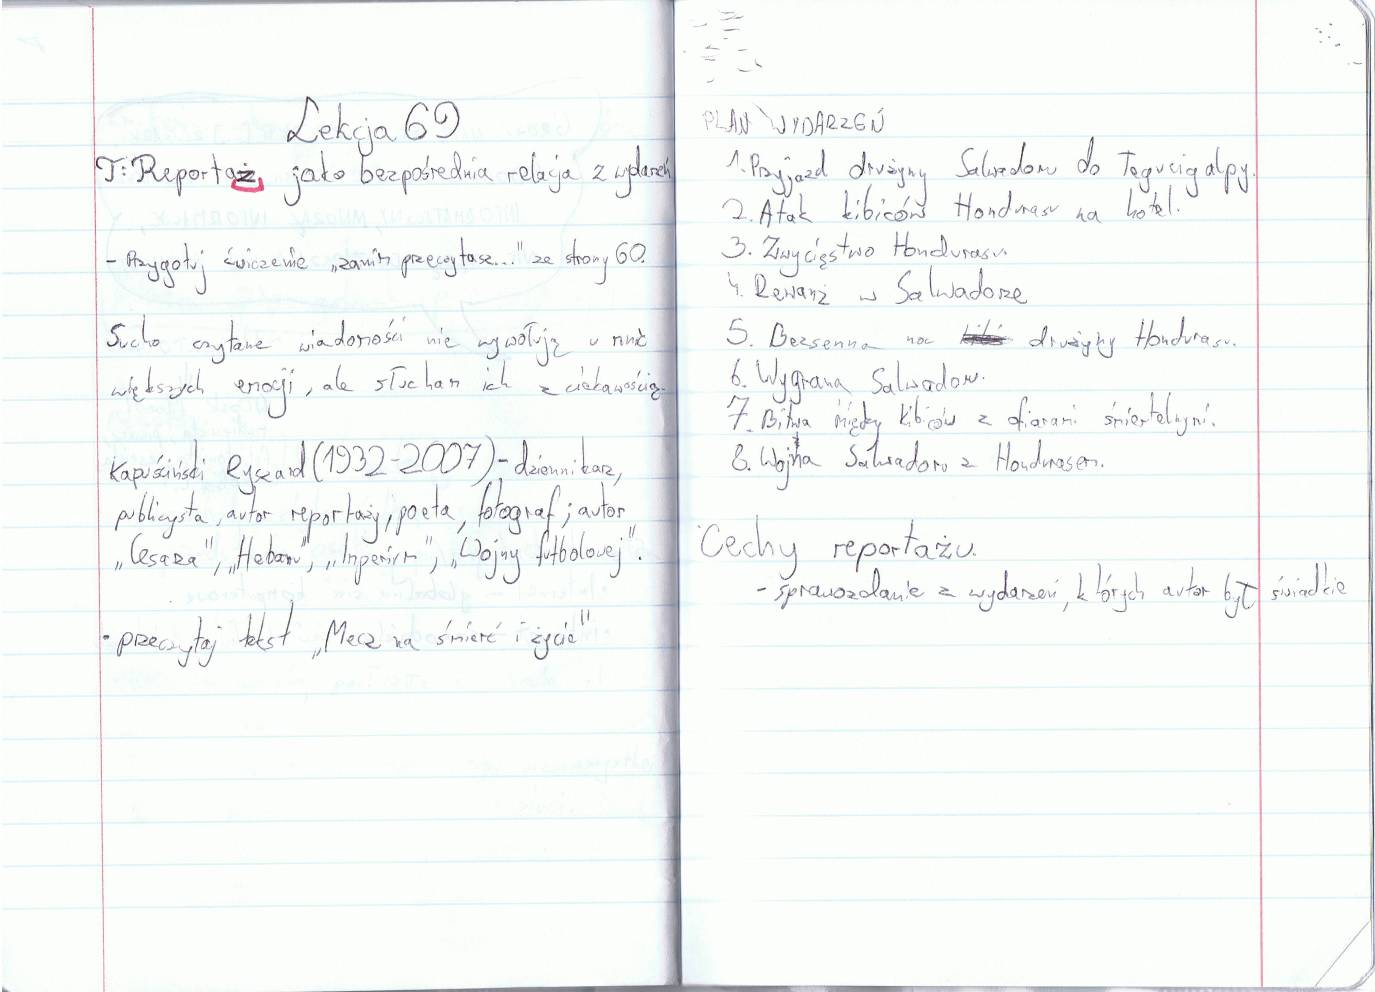 Lekcja 69
T: Reportaż jako bezpośrednia relacja z wydarzeń
- Przygotuj ćwiczenie „zanim przeczytasz..." ze strony 60.
Sucho czytane wiadomości nie wywołują u mnie
większych emocji, ale słucham ich z ciekawością.
Kapuściński Ryszard (1932-2007) - dziennikarz,
publicysta, autor reportaży, poeta, fotograf; autor
„Cesarza", „Hebanu", „Imperium", „Wojny futbolowej".
- przeczytaj tekst „Mecz na śmierć i życie"
PLAN WYDARZEŃ
1. Przyjazd drużyny Salwadoru do Tegucigalpy.
2. Atak kibiców Hondurasu na hotel.
3. Zwycięstwo Hondurasu.
4. Rewanż w Salwadorze
5. Bezsenna noc drużyny Hondurasu.
6. Wygrana Salwadoru.
7. Bitwa między kibiców z ofiarami śmiertelnymi.
8. Wojna Salwadoru z Hondurasem.
Cechy reportażu.
- sprawozdanie z wydarzeń, których autor był świadkie